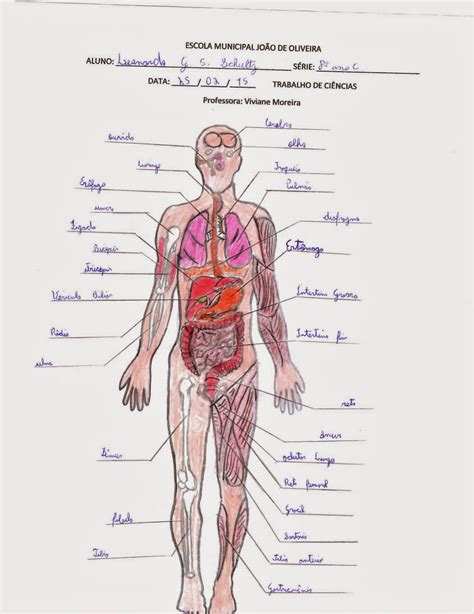 ESCOLA MUNICIPAL JOÃO DE OLIVEIRA
ALUNO: Leonardo G S. Schultz SÉRIE: 8º ano C
DATA: 25 / 02 / 15 TRABALHO DE CIÊNCIAS
Professora: Viviane Moreira
Cerebro
ouvido
olho
Laringe
Traquéia
Esôfago
Pulmão
Fígado
diafragma
Estômago
Vesicula Biliar
Intestino Grosso
Rádio
Intestino
ulna
reto
ânus
Fêmur
adutor Longo
Reto
Grácil
Sartório
Tíbia
Tibia anterior
Gastrocnêmio